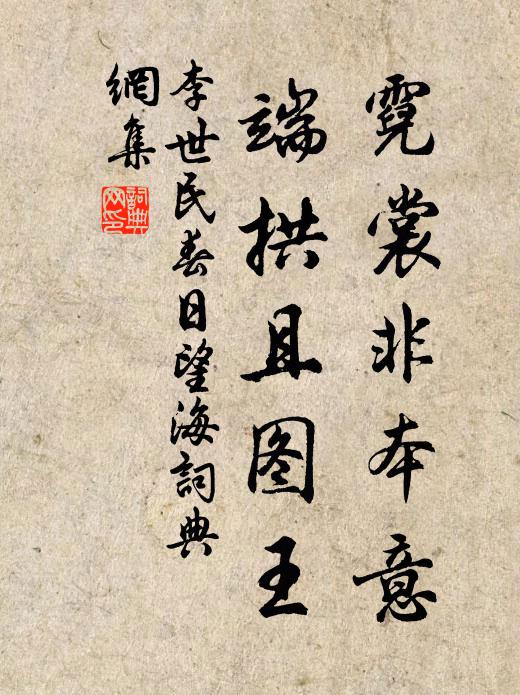 霓裳非本意
端拱且图王
李世民春日望海詞典
網集
詞典網印